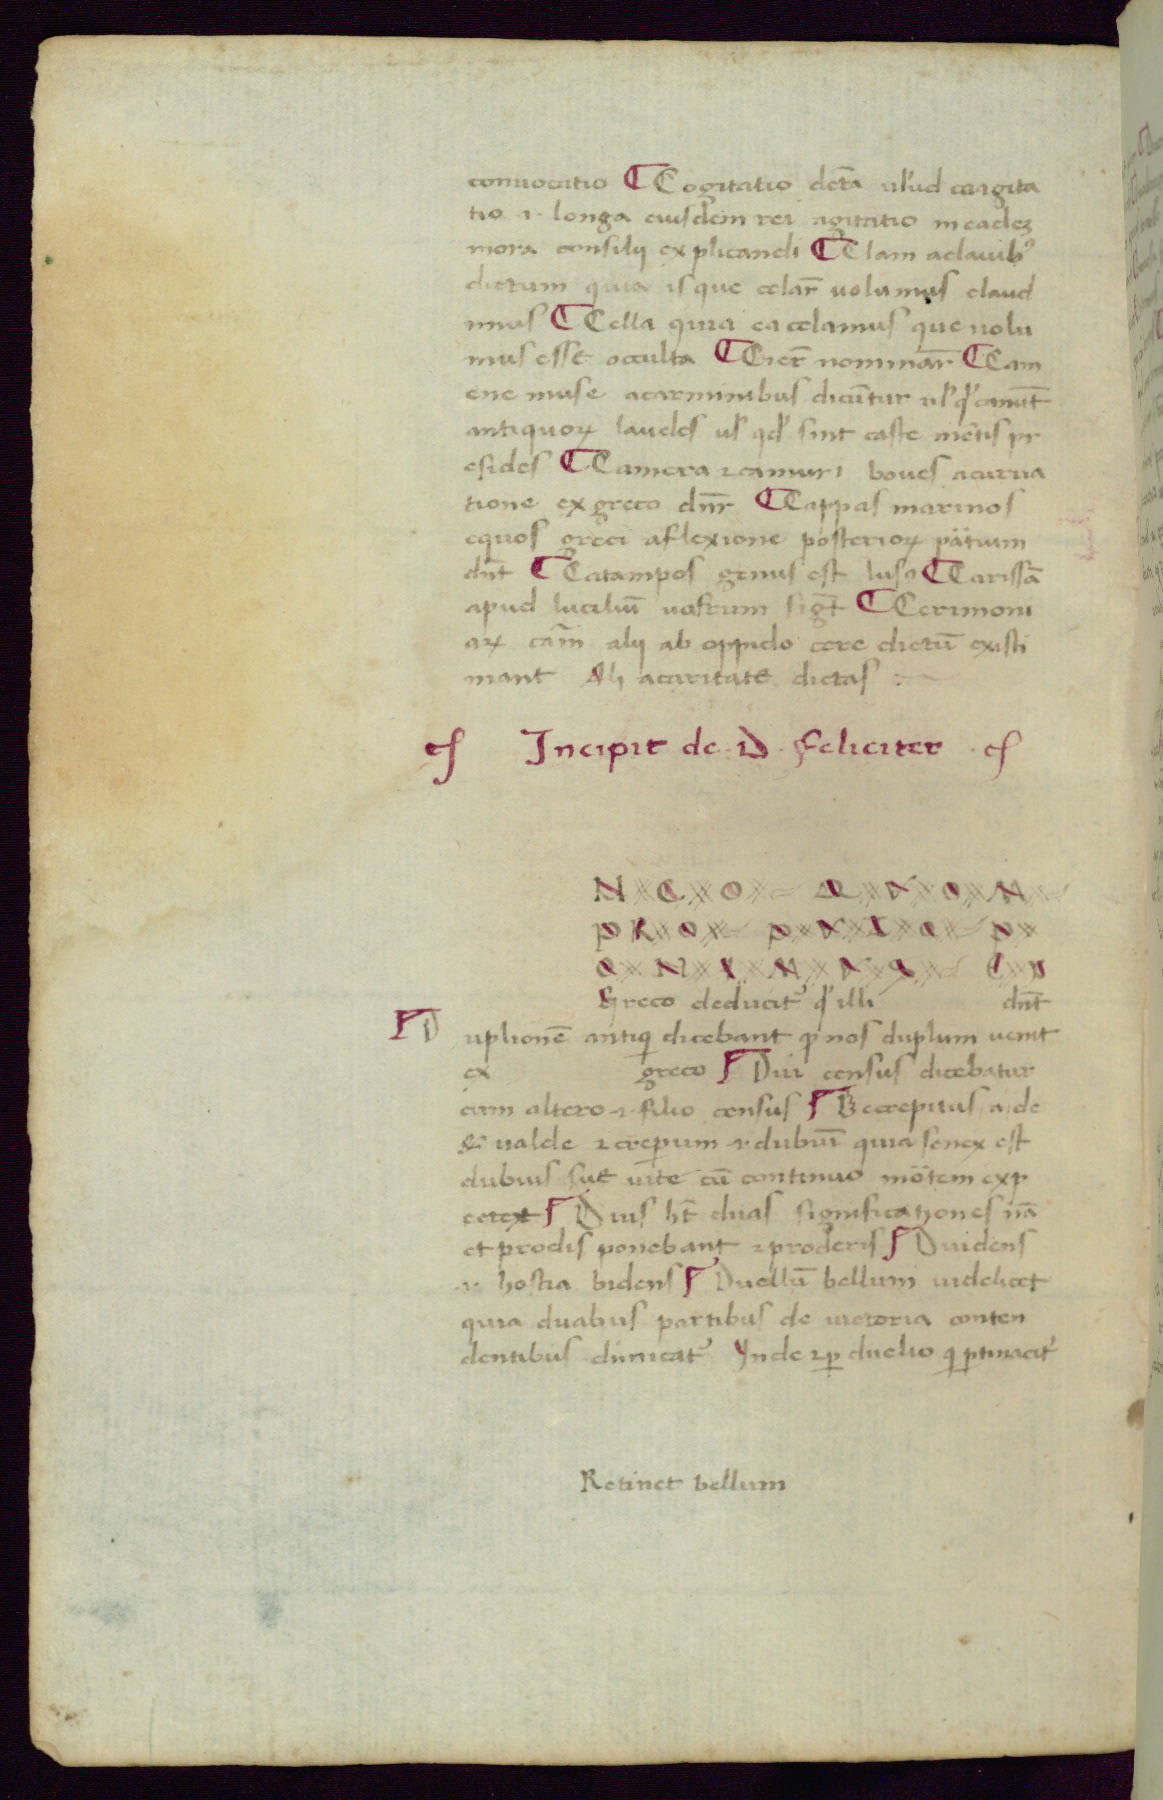 conuocatio ⸿ Cogitatio dc̄ta ul'ud coagita
tio .i. longa eiusdem rei agitatio in eadeʒ
mora consilij explicandi ⸿ Clam a clauibꝰ
dictum quia is que celar̄ uolumus claud
imus ⸿ Cella quia ea celamus que uolu
mus esse occulta ⸿ Cier̄ nominar̄ ⸿ Cam
ene muse a carminibus dicūtur ul' qd' canūt
antiquoꝝ laudes ul' qd' sint caste mētis pr
esides ⸿ Camera ⁊ camuri boues a curua
tione ex greco dn̄r ⸿ Cappas marinos
equos greci a flexione posterioꝝ partium
dn̄t ⸿ Catampos genus est lusꝰ ⸿ Carissā
apud luciliū uafrum sigt̄ ⸿ Cerimoni
aꝝ cām alij ab oppido cere dictū existi
mant Alij a caritate dictas :
Incipit de .D. feliciter
N C O D A O M
P R O P A I O P
E N I M A S
Greco deducit᷑ qd' illi dn̄t
⸿ D uplionē antiqi dicebant qd nos duplum uenit
ex greco ⸿ Dui census dicebatur
cum altero .i. filio census ⸿ Decrepitus a de
& ualde ⁊ crepum .i. dubiū quia senex est
dubius sue uite cū continuo mortem exp
ectet ⸿ Duis ht̄ duas significationes nā
et prodis ponebant ⁊ proderis ⸿ Duidens
.i. hostia bidens ⸿ Duellū bellum uidelicet
quia duabus partibus de uictoria conten
dentibus dimicat᷑ Inde ⁊ ꝑduelio qi ꝑtinacit᷑
Retinet bellum